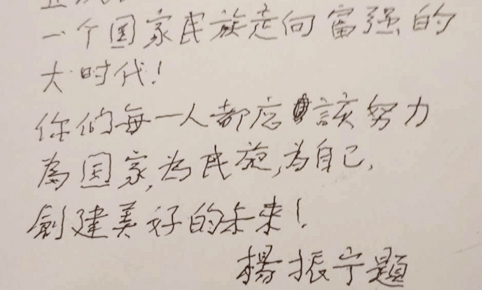 一个国家民族走向富强的
大时代!
你们每一人都应該努力
為国家,为民族,为自己,
創建美好的未来!
楊振宁題